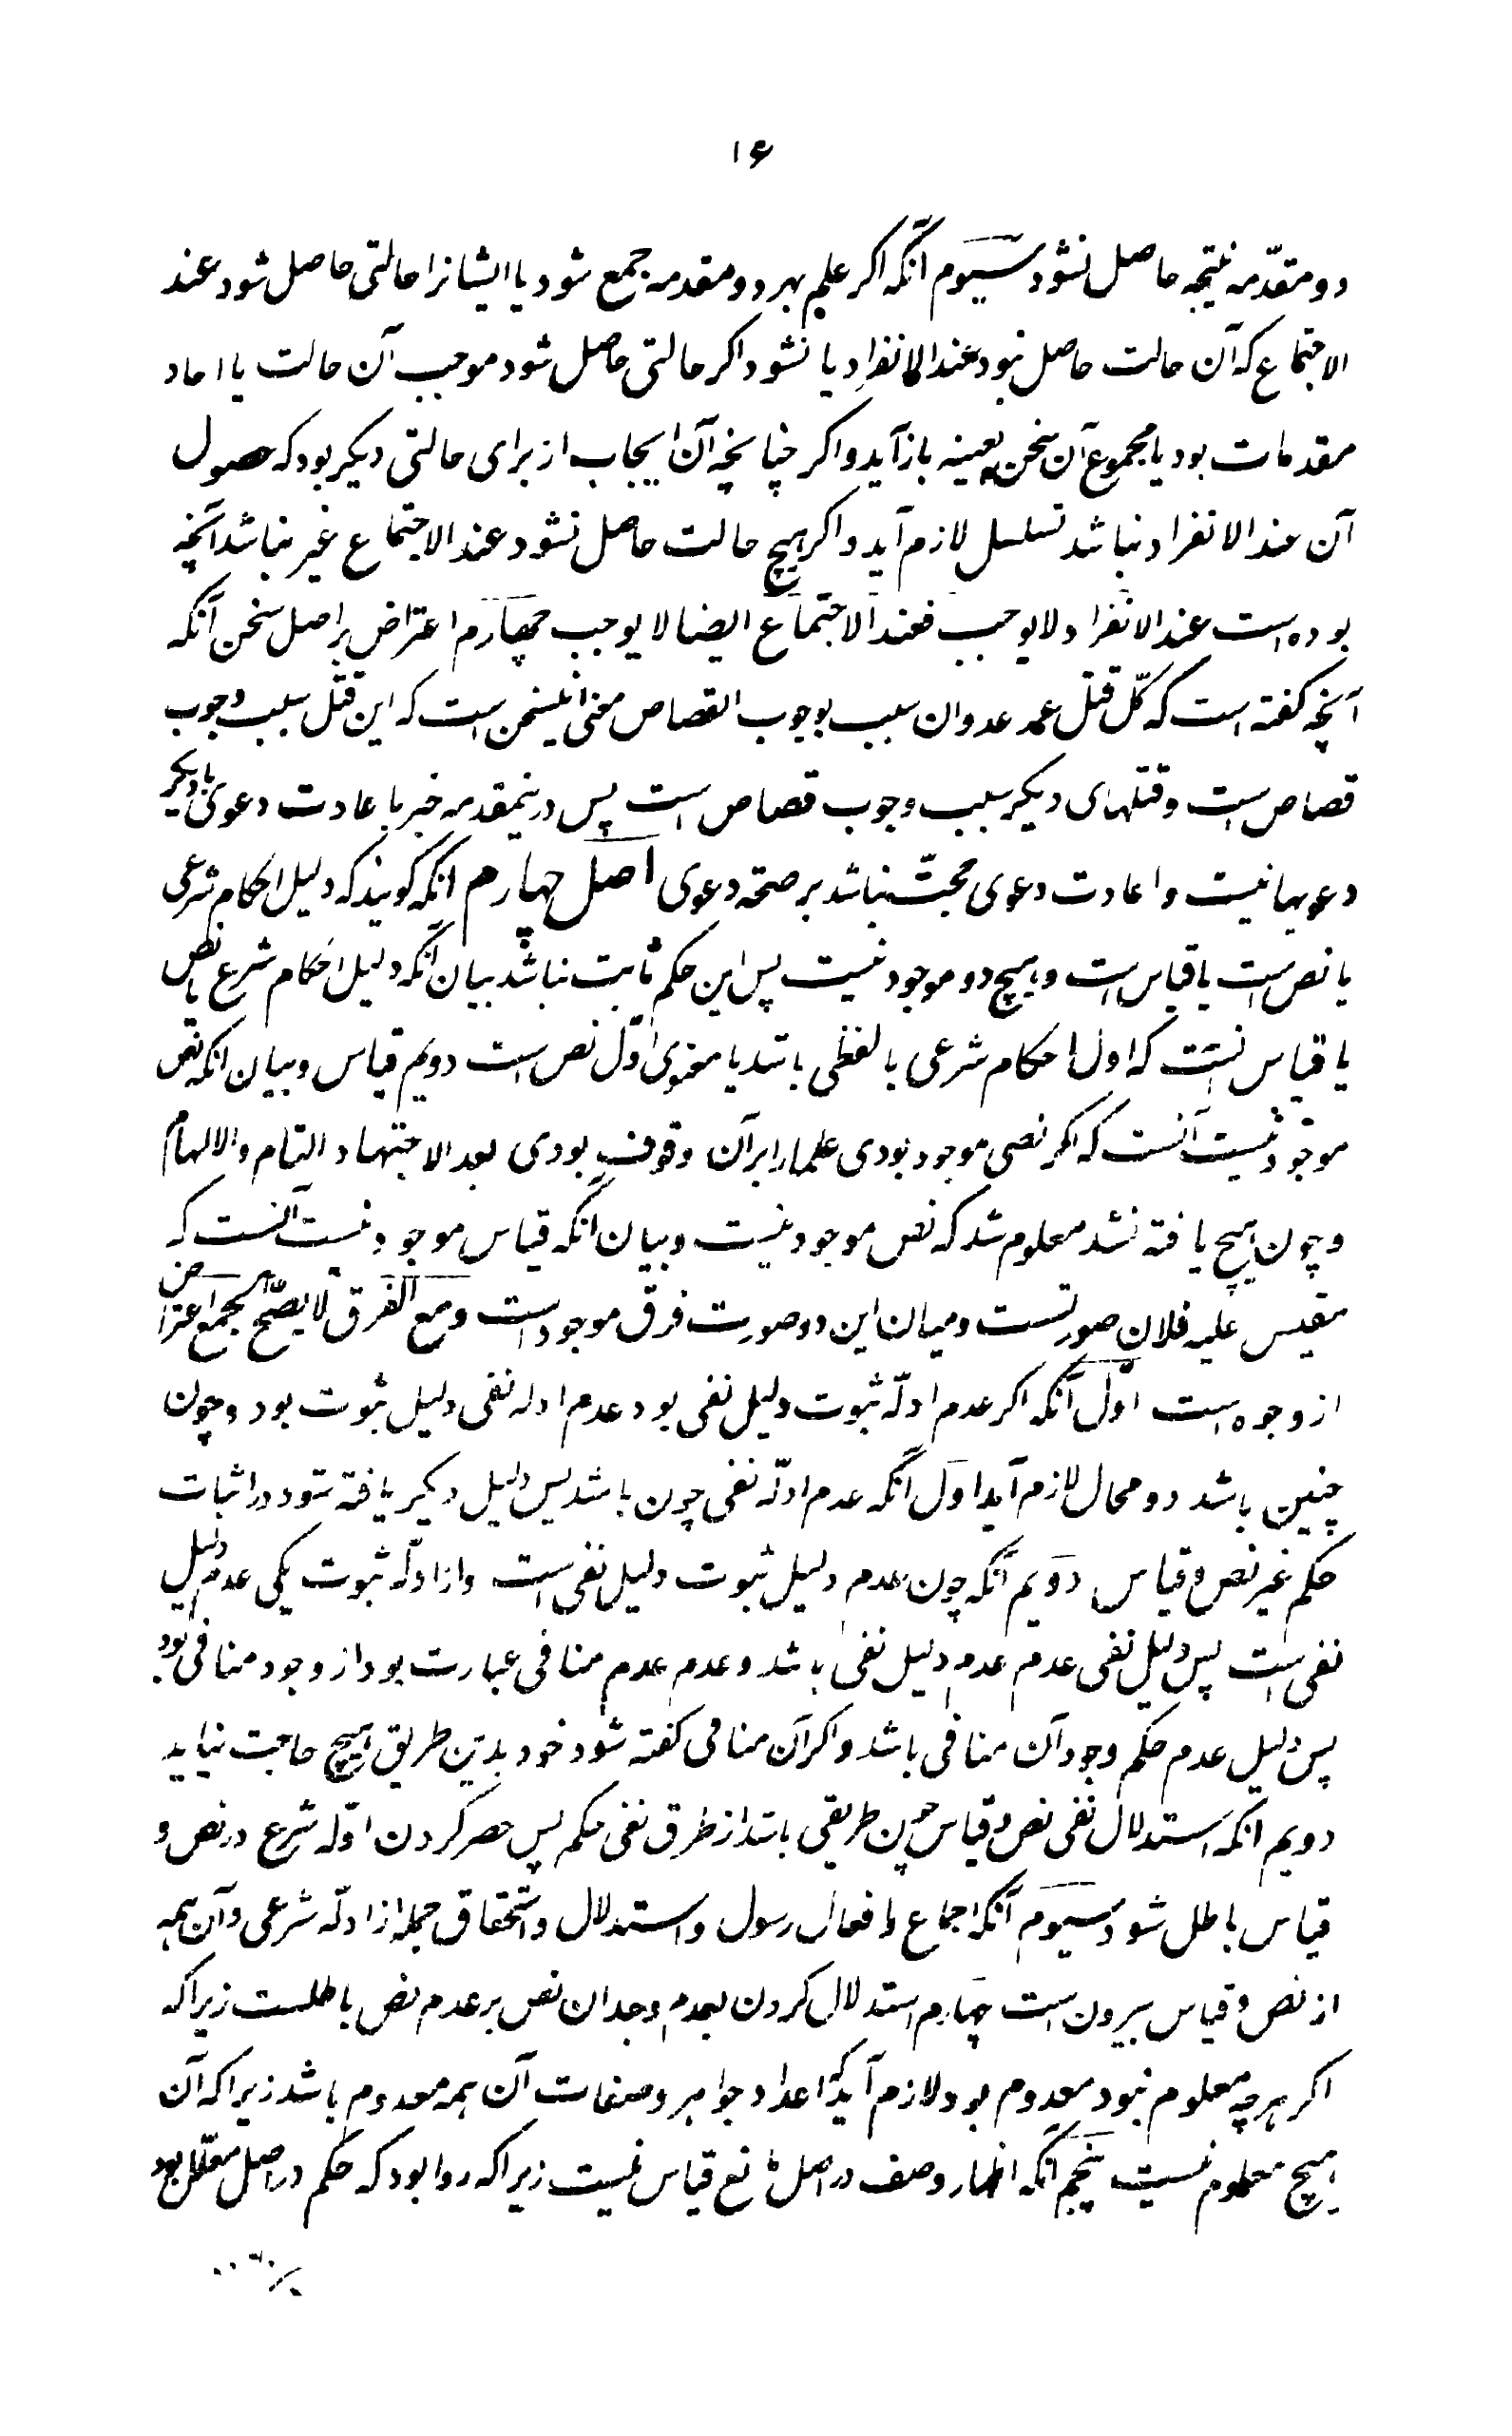 ۱۶
دو مقدّمه نتیجه حاصل نشود سیوم آنکه اکر علم بهر دو مقدمه جمع شود یا ایشانرا حالتی حاصل شود عند
الاجتماع که آن حالت حاصل نبود عند الانفراد یا نشود اکر حالتی حاصل شود موجب آن حالت یا احاد
مقدمات بود یا مجموع آن سخن بعینه باز آید و اکر چنانچه آن ایجاب از برای حالتی دیکر بود که حصول
آن عند الانفراد نباشد تسلسل لازم آید و اکر هیچ حالت حاصل نشود عند الاجتماع غیر نباشد آنچه
بوده است عند الانفراد لا یوجب فعند الاجتماع ایضا لا یوجب چهارم اعتراض بر اصل سخن آنکه
آنچه کفته است که کلّ قتل عمد عدوان سبب لوجوب القصاص معنی اینسخن است که این قتل سبب وجوب
قصاص است و قتلهای دیکر سبب وجوب قصاص است پس درینمقدمه خبر با عادت دعوی با دیکر
دعویها نیست و اعادت دعوی حجّت نباشد بر صحّة دعوی اصل چهارم انکه کویند که دلیل احکام شرعی
یا نص است یا قیاس است و هیچ دو موجود نیست پس این حکم ثابت نباشد بیان آنکه دلیل احکام شرع یا نص
یا قیاس نیست که اول احکام شرعی یا لفظی باشد یا معنوی اوّل نص است دویم قیاس و بیان انکه نص
موجود نیست آنست که اکر نصی موجود بودی علما را بر آن وقوف بودی بعد الاجتهاد التام والالهام
و چون هیچ یافته نشد معلوم شد که نص موجود نیست و بیان انکه قیاس موجود نیست آنست که
مقیس علیه فلان صورتست و میان این دو صورت فرق موجود است ومع الفرق لا یصحّ الجمع اعتراض
از وجوه است اوّل آنکه اکر عدم ادلّه ثبوت دلیل نفی بود عدم ادله نفی دلیل ثبوت بود و چون
چنین باشد دو محال لازم آید اوّل آنکه عدم ادلّه نفی چون باشد پس دلیل دیکر یافته شود در اثبات
حکم غیر نص و قیاس دویم آنکه چون عدم دلیل ثبوت دلیل نفی است و از ادلّه ثبوت یکی عدم دلیل
نفی است پس دلیل نفی عدم عدم دلیل نفی باشد و عدم عدم منافی عبارت بود از وجود منافی بود
پس دلیل عدم حکم وجود آن منافی باشد و اکر آن منافی کفته شود خود بدین طریق هیچ حاجت نیاید
دویم انکه استدلال نفی نص و قیاس چون طریقی باشد از طرق نفی حکم پس حصر کردن ادلّه شرع در نص و
قیاس باطل شود سیوم آنکه اجماع و افعال رسول و استدلال و استحقاق جمله از ادلّه شرعی و آن همه
از نص و قیاس بیرون است چهارم استدلال کردن بعدم وجدان نص بر عدم نص باطلست زیرا که
اکر هرچه معلوم نبود معدوم بود لازم آید که اعداد جواهر و صفات آن همه معدوم باشد زیرا که آن
هیچ معلوم نیست پنجم آنکه اظهار وصف در اصل مانع قیاس نیست زیرا که روا بود که حکم در اصل معلّل بود